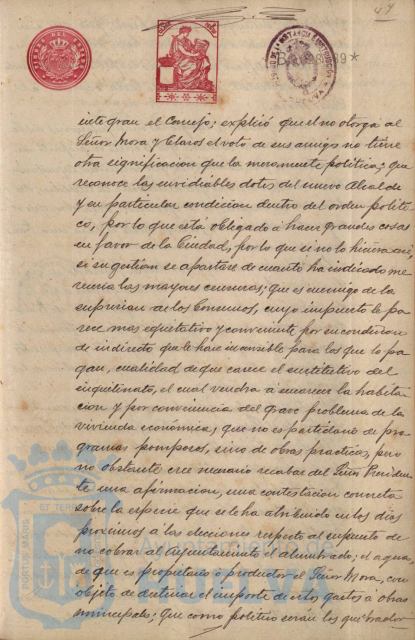 47
integran el Concejo; explicó que el no otorga al
Señor Mora y Claros el voto de sus amigos no tiene
otra significacion que la meramente politica; que
reconoce las envidiables dotes del nuevo Alcalde
y su particular condicion dentro del orden politi-
co, por lo que está obligado á hacer grandes cosas
en favor de la Ciudad, por lo que si no lo hiciera asi,
si su gestion se apartase de cuanto ha indicado me-
receria las mayores censuras; que es enemigo de la
supresion de los Consumos, cuyo impuesto le pa-
rece mas equitativo y conveniente por su condicion
de indirecto que le hace insensible para los que lo pa-
gan, cualidad de que carece el sustitutivo del
inquilinato, el cual vendra á encarecer la habita-
cion y por consecuencia del grave problema de la
vivienda económica; que no es partidario de pro-
gramas pomposos, sino de obras practicas, pero
no obstante cree necesario recabar del Señor Presiden-
te una afirmacion, una contestacion concreta
sobre la especie que se le ha atribuido en los dias
proximos á las elecciones respecto al supuesto de
no cobrar al Ayuntamiento el alumbrado; el agua,
de que es propietario ó productor el Señor Mora, con
objeto de destinar el importe de estos gastos á obras
municipales; que como politico serán los que